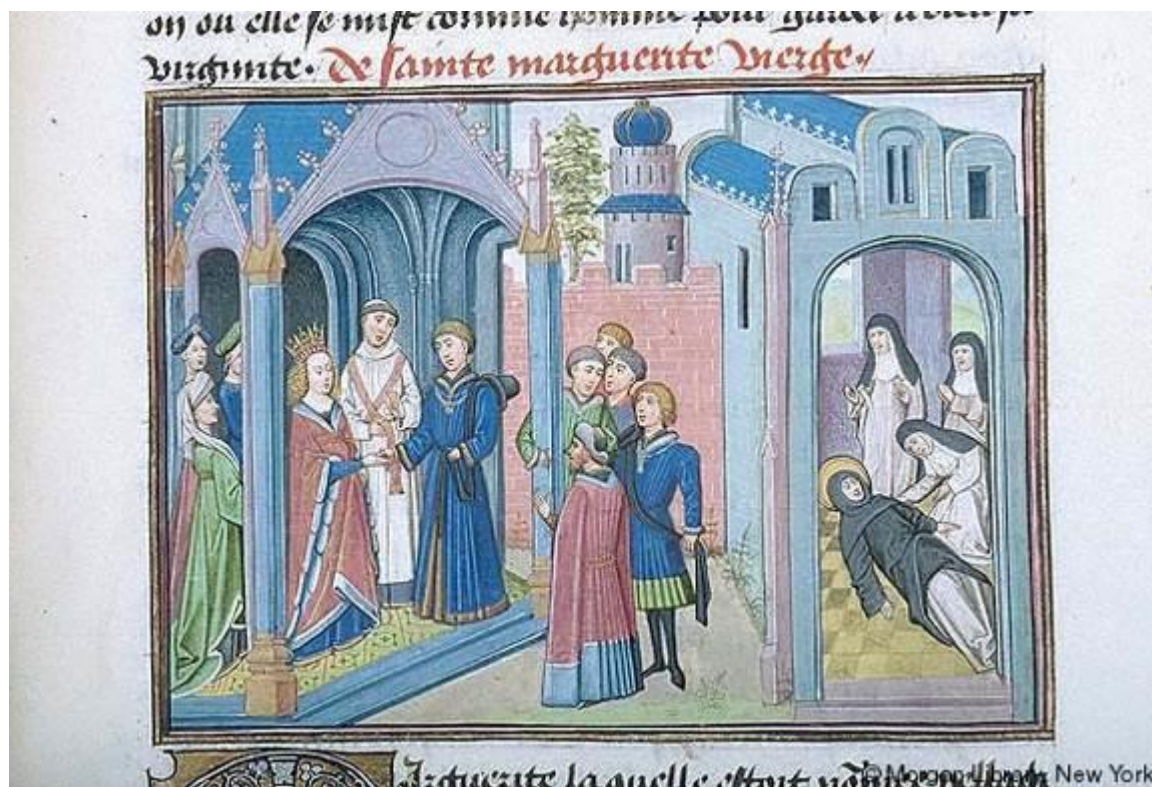 on ou elle se mist comme homme pour garder
virginite. De sainte marguerite vierge.
arguerite laquelle estoit
© Morgan Library, New York